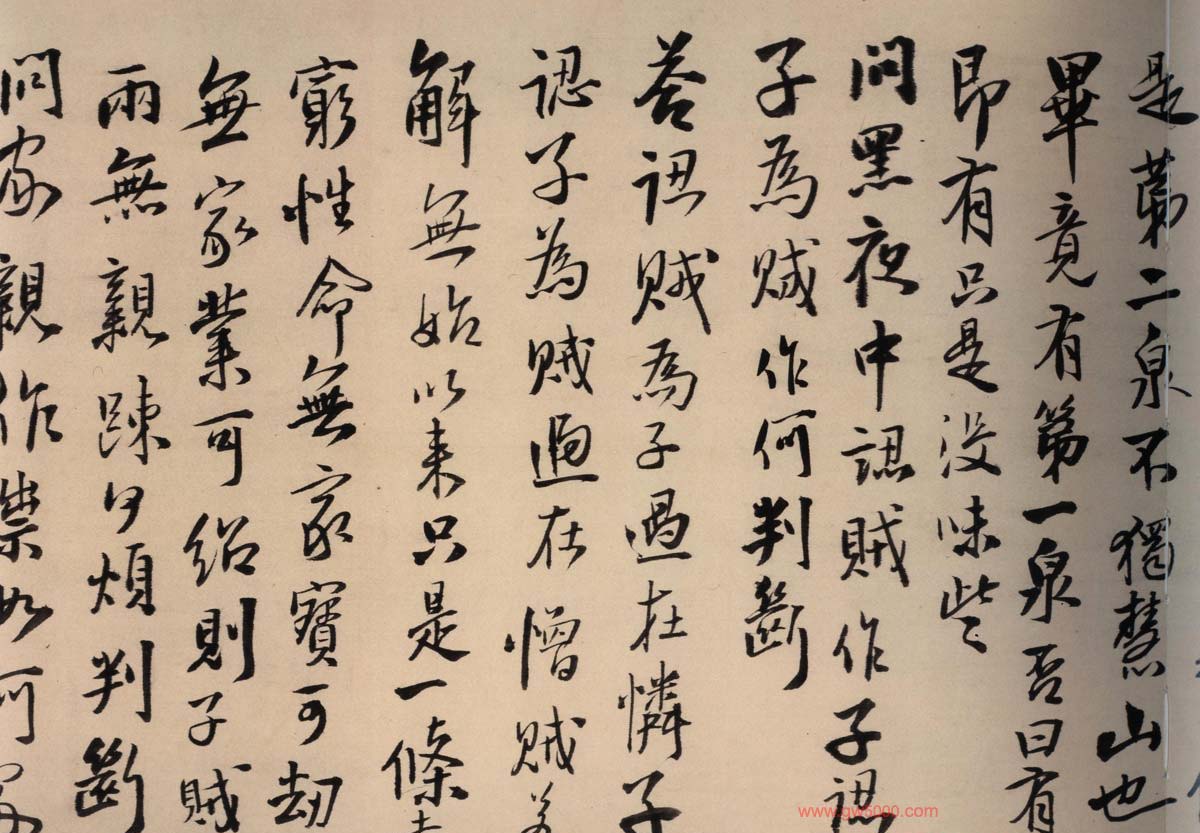 是第二泉不獨慧山也
畢竟有第一泉否曰有
即有只是没味些
問黑夜中認賊作子認
子為賊作何判斷
答認賊為子過在憐子
認子為賊過在憎賊若
解無始以来只是一條
窮性命無家寶可劫
無家業可紹則子賊
兩無親疎何煩判斷
問家親作祟如何
www.gw5000.com